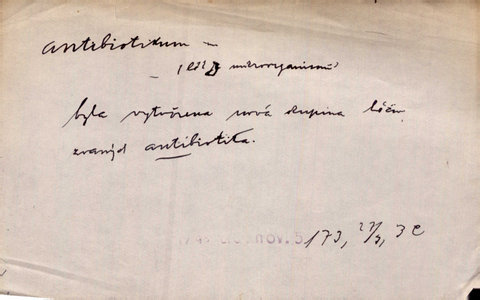 antibiotikum –
– / mikroorganismů
byla vytvořena nová skupina léčiv,
zvaných antibiotika.
173, 27/3, 3c